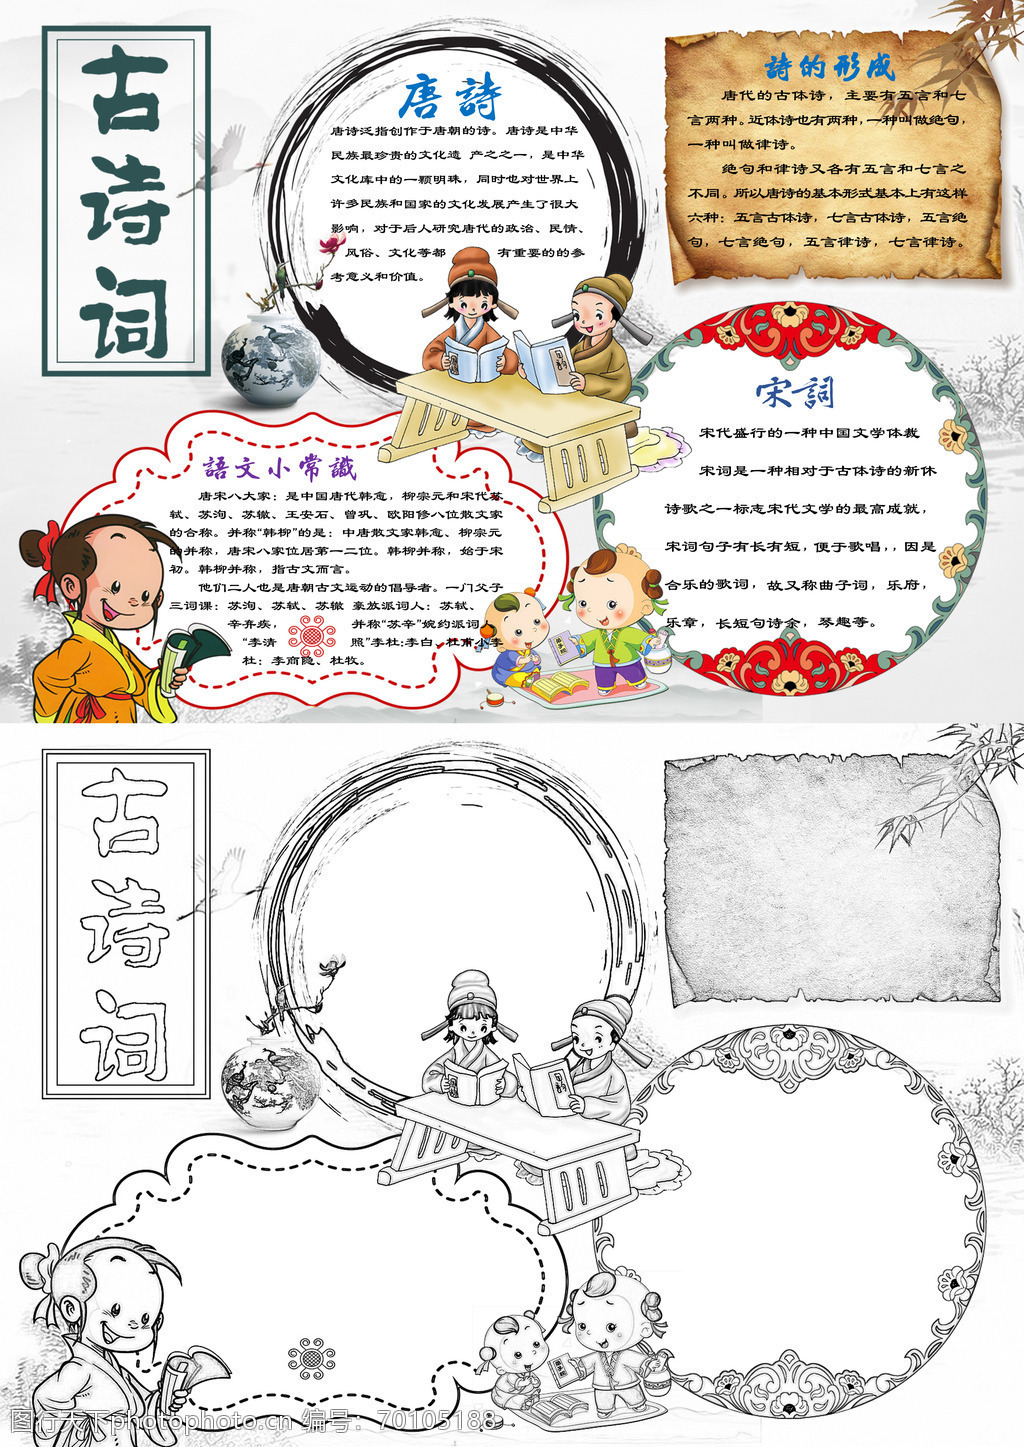 古诗词
唐詩
唐诗泛指创作于唐朝的诗。唐诗是中华
民族最珍贵的文化遗 产之之一，是中华
文化库中的一颗明珠，同时也对世界上
许多民族和国家的文化发展产生了很大
影响，对于后人研究唐代的政治、民情、
风俗、文化等都 有重要的的参
考意义和价值。
詩的形成
唐代的古体诗，主要有五言和七
言两种。近体诗也有两种，一种叫做绝句，
一种叫做律诗。
绝句和律诗又各有五言和七言之
不同。所以唐诗的基本形式基本上有这样
六种：五言古体诗，七言古体诗，五言绝
句，七言绝句，五言律诗，七言律诗。
宋詞
宋代盛行的一种中国文学体裁
宋词是一种相对于古体诗的新休
诗歌之一标志宋代文学的最高成就，
宋词句子有长有短，便于歌唱，，因是
合乐的歌词，故又称曲子词，乐府，
乐章，长短句诗余，琴趣等。
語文小常識
唐宋八大家：是中国唐代韩愈，柳宗元和宋代苏
轼、苏洵、苏辙、王安石、曾巩、欧阳修八位散文家
的合称。并称“韩柳”的是：中唐散文家韩愈、柳宗元
的并称，唐宋八家位居第一二位。韩柳并称，始于宋
初。韩柳并称，指古文而言。
他们二人也是唐朝古文运动的倡导者。一门父子
三词课：苏洵、苏轼、苏辙 豪放派词人：苏轼、
辛弃疾， 并称“苏辛”婉约派词人
“李清 照”李杜:李白、杜甫小李
杜：李商隐、杜牧。
古诗词
图行天下photophoto.cn 编号：70105188